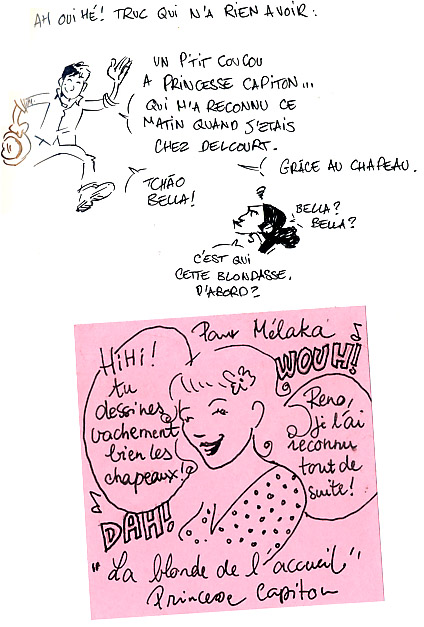 AH OUI HÉ! TRUC QUI N'A RIEN A VOIR:
UN P'TIT COUCOU
A PRINCESSE CAPITON...
QUI M'A RECONNU CE
MATIN QUAND J'ÉTAIS
CHEZ DELCOURT.
GRÂCE AU CHAPEAU.
TCHÂO
BELLA!
?
BELLA?
BELLA?
C'EST QUI
CETTE BLONDASSE,
D'ABORD?
Pour Mélaka
HiHi!
tu
dessines
vachement
bien les
chapeaux!
WOUH!
Reno,
je l'ai
reconnu
tout de
suite!
DAH!
"La blonde de l'accueil"
Princesse Capiton